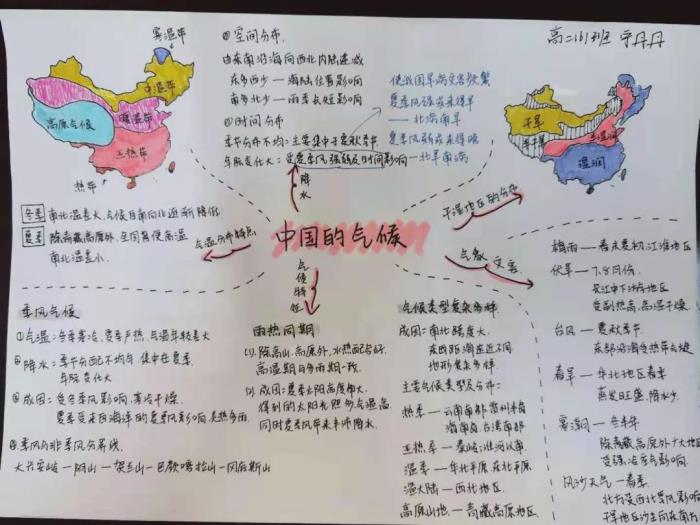 高二(8)班 宁丹丹
寒温带
中温带
暖温带
高原气候
亚热带
热带
冬季 南北温差大,气候自南向北逐渐降低
夏季 除青藏高原外,全国普便高温
南北温差小.
①空间分布.
由东南沿海向西北内陆递减
东多西少—海陆位置影响
南多北少—雨季长短影响
②时间分布
季节分布不均:主要集中于夏秋季节
年际变化大:受夏季风强弱及时间影响
使我国旱涝灾害频繁
夏季风强或来得早
—北涝南旱
夏季风弱或来得晚
—北旱南涝
干旱
半干旱
半湿润
湿润
中国的气候
降水
气温分布特点
干湿地区的分布
气象灾害
气候特征
季风气候
①气温:冬季寒冷,夏季炎热,气温年较差大
②降水:季节分配不均匀,集中在夏季.
年际变化大
③成因:受冬季风影响,寒冷干燥
夏季受来自海洋的夏季风影响,炎热多雨
④季风与非季风分界线
大兴安岭—阴山—贺兰山—巴颜喀拉山—冈底斯山
雨热同期
(1).除高山、高原外,水热配合好.
高温期与多雨期一致.
(2).成因:夏季太阳高度角大
得到的太阳光照多,气温高
同时夏季风带来丰沛降水.
气候类型复杂多样
成因:南北跨度大.
东西距海远近不同
地形复杂多样
主要气候类型及分布:
热季—云南南部 雷州半岛
海南岛、台湾南部
亚热季—秦岭淮河以南
温季—华北平原、东北平原
温大陆—西北地区
高原山地—青藏高原地区
梅雨—春末夏初,江淮地区
伏旱—7.8月份
长江中下游地区
受副热高,高温干燥
台风—夏秋季节
东部沿海受热带气旋
春旱—华北地区春季
蒸发旺盛,降水少
寒潮—冬半年
除青藏高原外广大地区
受强冷空气影响.
风沙天气—春季